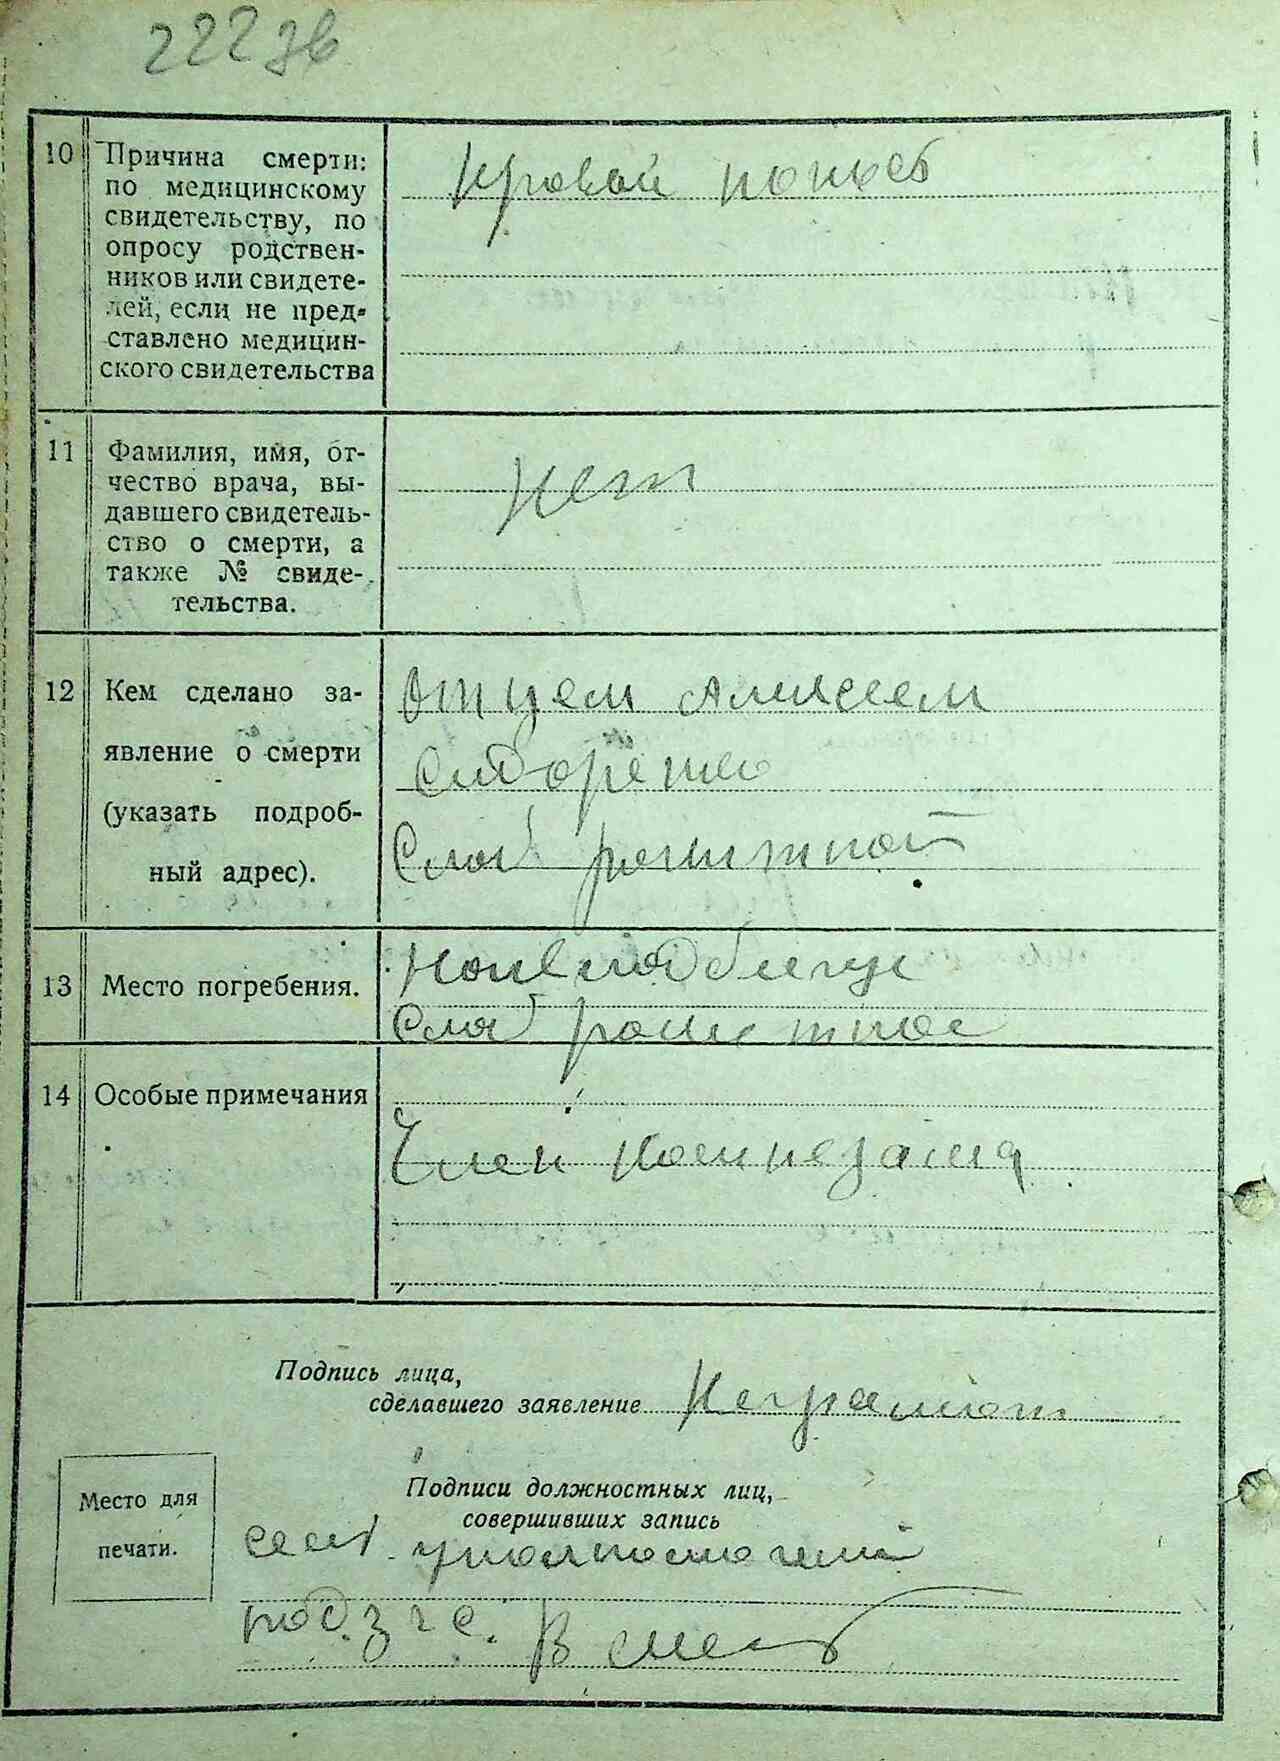 222зв
10 Причина смерти:
по медицинскому
свидетельству, по
опросу родствен-
ников или свидете-
лей, если не пред-
ставлено медицин-
ского свидетельства
Кровавый понос
11 Фамилия, имя, от-
чество врача, вы-
давшего свидетель-
ство о смерти, а
также № свиде-
тельства.
нет
12 Кем сделано за-
явление о смерти
(указать подроб-
ный адрес).
Отцем Аликсеем
Сидоренко
Слоб
13 Место погребения.
кладбище
Слоб
14 Особые примечания
Член
Подпись лица,
сделавшего заявление Неграмот
Место для
печати.
Подписи должностных лиц,
совершивших запись
уполномочений